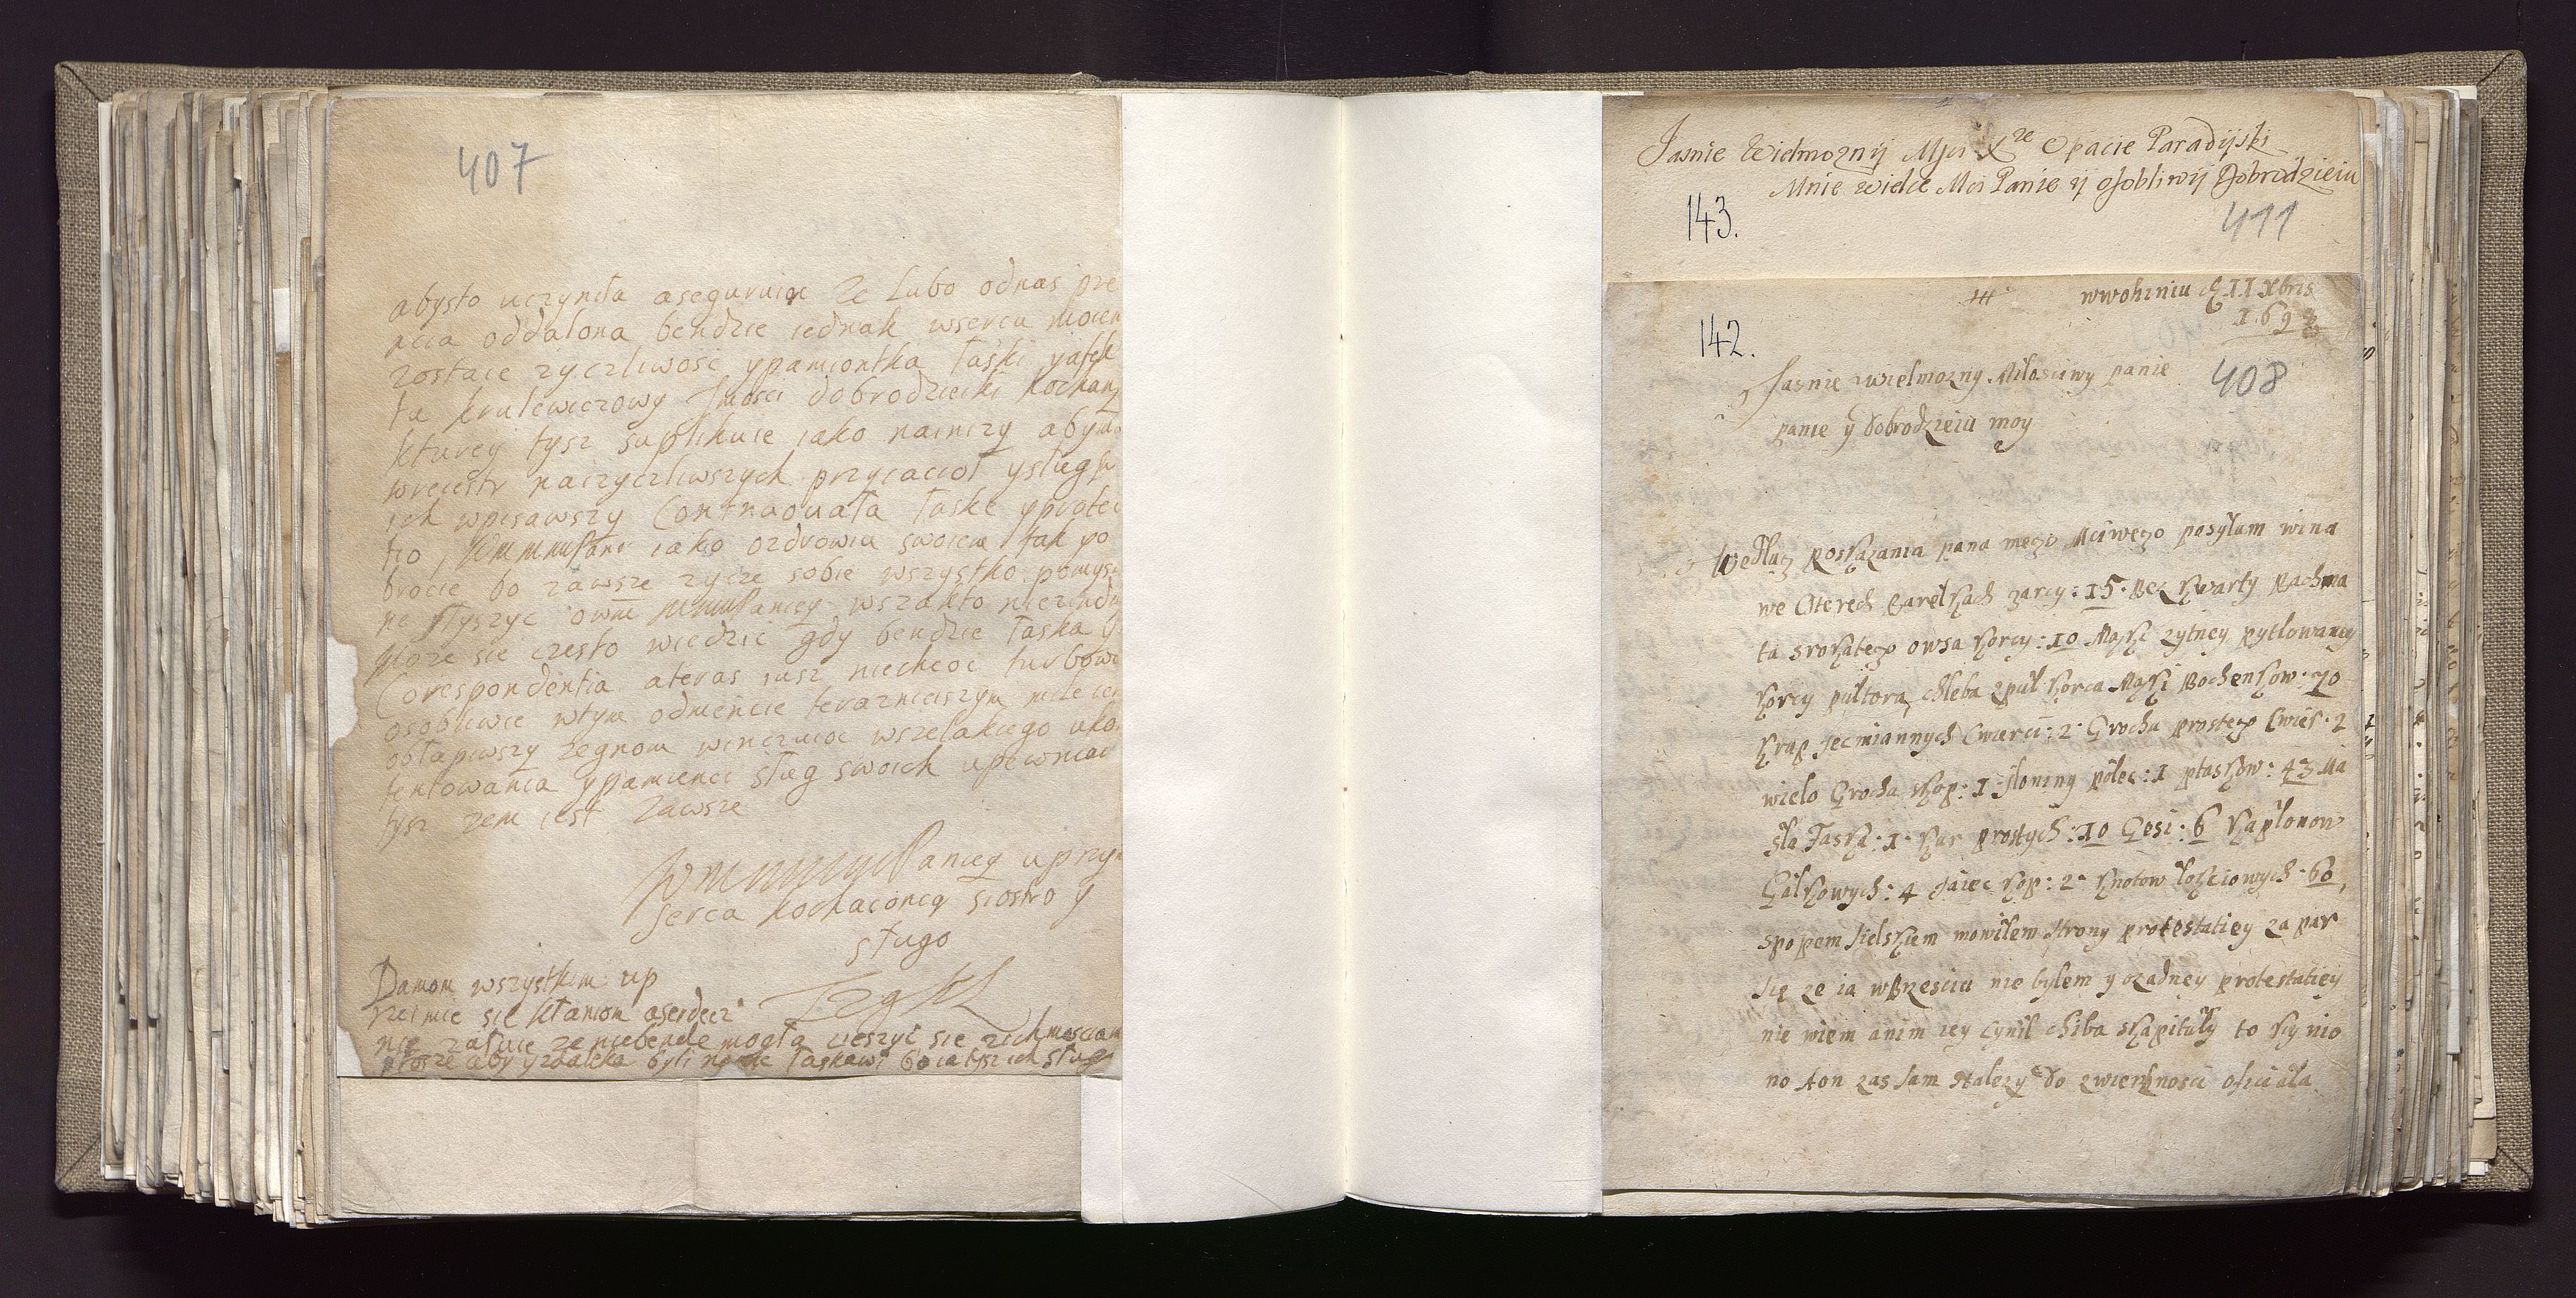 407
abysto uczyniła aseguruiąc ze Lubo odnas pre
ncia oddalona bendzie iednak wsercu moiem
zostaie zyczliwosc ypamiontka łaski yafek
tu krulewiczowy Jmosci dobrodzieiki kochany
kturey tysz suplikuie iako nainizy abym
wreiestr naizyczliwszych przyiacioł ysług sw
ich wpisawszy Continaouała łaske yprotec
tio, iako ozdrowiu swoiem tak po
brocie bo zawsze zycze sobie wszystko pomysl
ne słyszyc owm Paniey wszakto niezindu
moze sie czesto wiedzic gdy bendzie łaska y
Corespondentia ateras iusz niechcoc turbowa
osobliwie wtym odmencie terazniciszym nozle
obłapiwszy zegnom winczuioc wszelakiego uko
tentowania ypamienci sług swoich upewniaioc
tysz zem iest zawsze
Paniey uprzy
serca kochaioncą siostro y
sługo
Damom wszystkim up
rzeimie sie kłaniom aserdecz
nie załuie ze niebende mogła cieszyć sie zichmosciam
prosze aby yzdaleka byli na mie łaskawi bo ia tysz ich sługo
Jasnie Wielmoznij Mci Xze Opacie Paradijski
Mnie wielce Mci Panie ij osobliwij Dobrodzieiu
143.
411
wwohiniu d 11 Xbris
1693
142.
408
Jasnie wielmozny Miłosciwy panie
panie y dobrodzieiu moy
Wedlug Roskazania pana mego Mciwego posyłam wina
we Cterech barełkach garcy: 15. Bez kwarty Rachma
ta srokatego owsa korcy: 10 Mąki zytney pytlowaney
korcy pułtora, chleba zpuł korca Mąki Bochenkow: 70
krup Jecmiannych Cwierci: 2. Grochu prostego Cwier. 2
wielo Grochu skop: 1. słoniny połec: 1 ptaskow: 43 Ma
sła Faska: 1. kur prostych: 10 Gęsi: 6 kapłonow
Gałkowych: 4 Jaiec kop: 2. knotow łokciowych. 60,
spopem sielskiem mowiłem strony protestatiey za par
się ze ia wBrzesciu nie byłem y ozadney protestatiey
nie wiem anim iey cynił chiba skapituły to ucynio
no Aon zas sam nalezy do zwierzhnosci oficiała